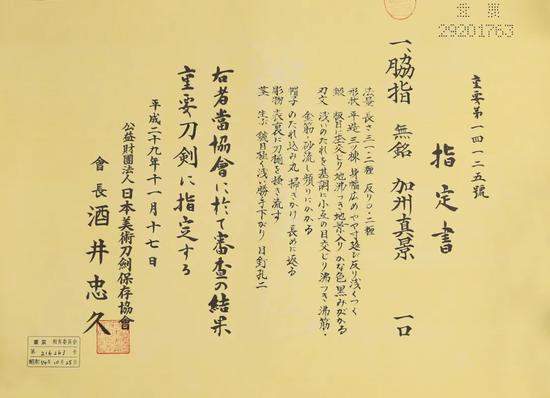 29201763
重要第一四一二五號
指定書
一、脇指 無銘 加州真景 一口
法量 長さ三一・二糎 反り〇・二糎
形状 平造 三ツ棟 身幅広め やや寸延び 反り浅くつく
鍛 板目に杢交じり 地沸つき 地景入り かな色黒みがかる
刃文 浅いのたれを基調に小互の目交じり 沸つき 沸筋・
金筋・砂流し頻りにかかる
帽子 のたれ込み丸 掃きかけ 長めに返る
彫物 表裏に刀樋を掻き流す
茎 生ぶ 鑢目極く浅い勝手下がり 目釘孔二
右者當協會に於て審査の結果
重要刀剣に指定する
平成二十九年十一月十七日
公益財團法人日本美術刀劍保存協會
會長 酒井忠久
東京 教育委員会
第 216261 号
昭和54年10月25日